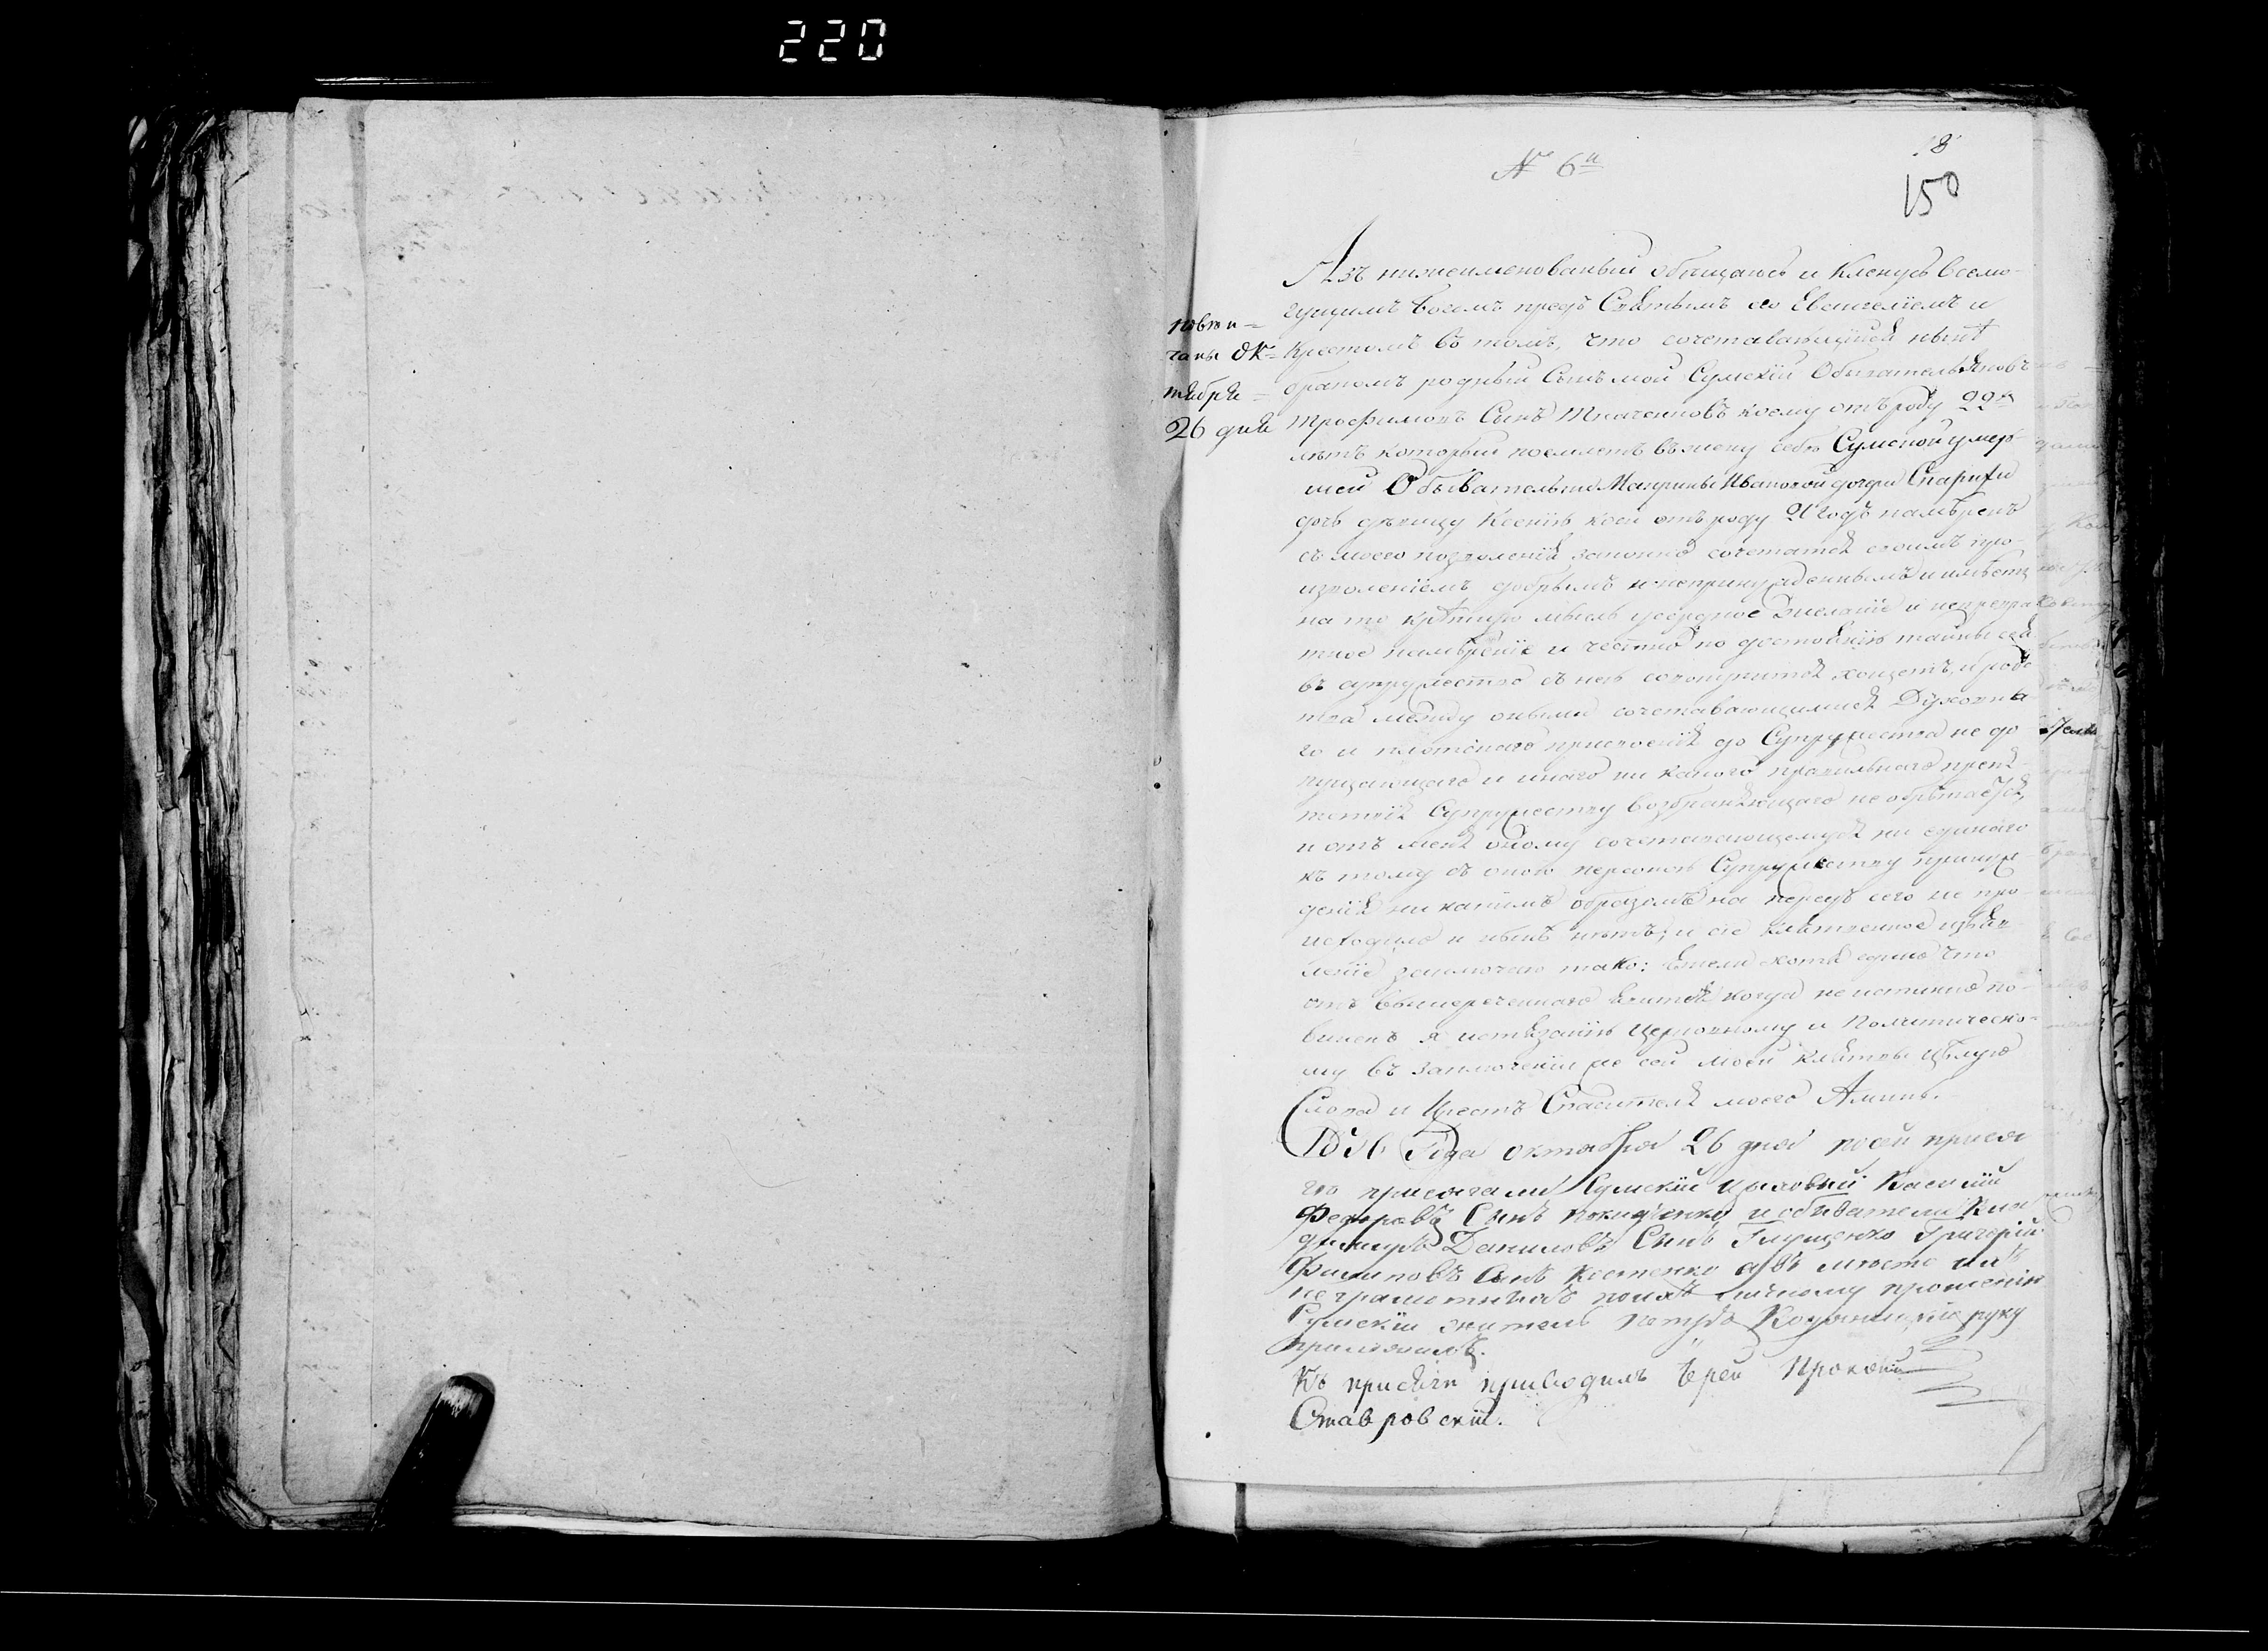 220
8
№ 6й
150
Азъ нижеименованный обѣщаюсь и кленусь всемо-
гущимъ Богомъ предъ Святымъ его Евангелiемъ и
крестомъ въ томъ, что сочетавающiйся нынѣ
бракомъ родный Сынъ мой Сумскiй Обыватель Яковъ
Трофимовъ Сынъ Ткаченковъ коему отъ роду 22
лѣтъ который поемлетъ въ жену себѣ Сумской умер-
шей Обывательки Матрины Ивановой дочери
дочь дѣвицу Ксенiю коей отъ роду 21 годъ намѣренъ
съ моего позволенiя законно сочетатся своимъ про-
изволенiемъ добрымъ и непринужденнымъ и имѣетъ
на то крѣпкую мысль усердное желанiе и непревра-
тное намѣренiе и честно по достоянiю тайны сея
въ супружество съ нею совокупится хощетъ, и родс
тва между оными сочетавающимися Духовна-
го и плотскаго присвоенiя до Супружества не до
пущающаго и инаго ни какого правильнаго препя-
тствiя Супружеству возбраняющаго не обрѣтается,
и отъ меня оному сочетающемуся ни единаго
къ тому съ оною персоною Супружеству принуж
денiя ни какимъ образомъ на передъ сего не про-
исходило и нынѣ нѣтъ; и сiе клятвенное изъяв-
ленiе заключаю тако: Ежели хотя едино что
отъ вышереченнаго явится когда не истинно по-
виненъ я истязанiю Церковному и Политическо-
му въ заключенiи же сей моей клятвы цѣлую
Слова и Крестъ Спасителя моего Аминь.
Года октября 26 дня посей прися
ги присягали Сумскiй цѣховый Василiй
Федоровъ Сынъ и обыватели Вла
димиръ Даниловъ Сынъ Глущенко Григорiй
Филиповъ Сынъ Костенко а въ мѣсто ихъ
неграмотныхъ поихъ личному прошенiю
Сумскiй житель Петръ руку
приложилъ.
Къ присяги приводилъ Iерей Прокопiй
Ставровскiй.
повѣн=
чаны Ок=
тября=
26 дня